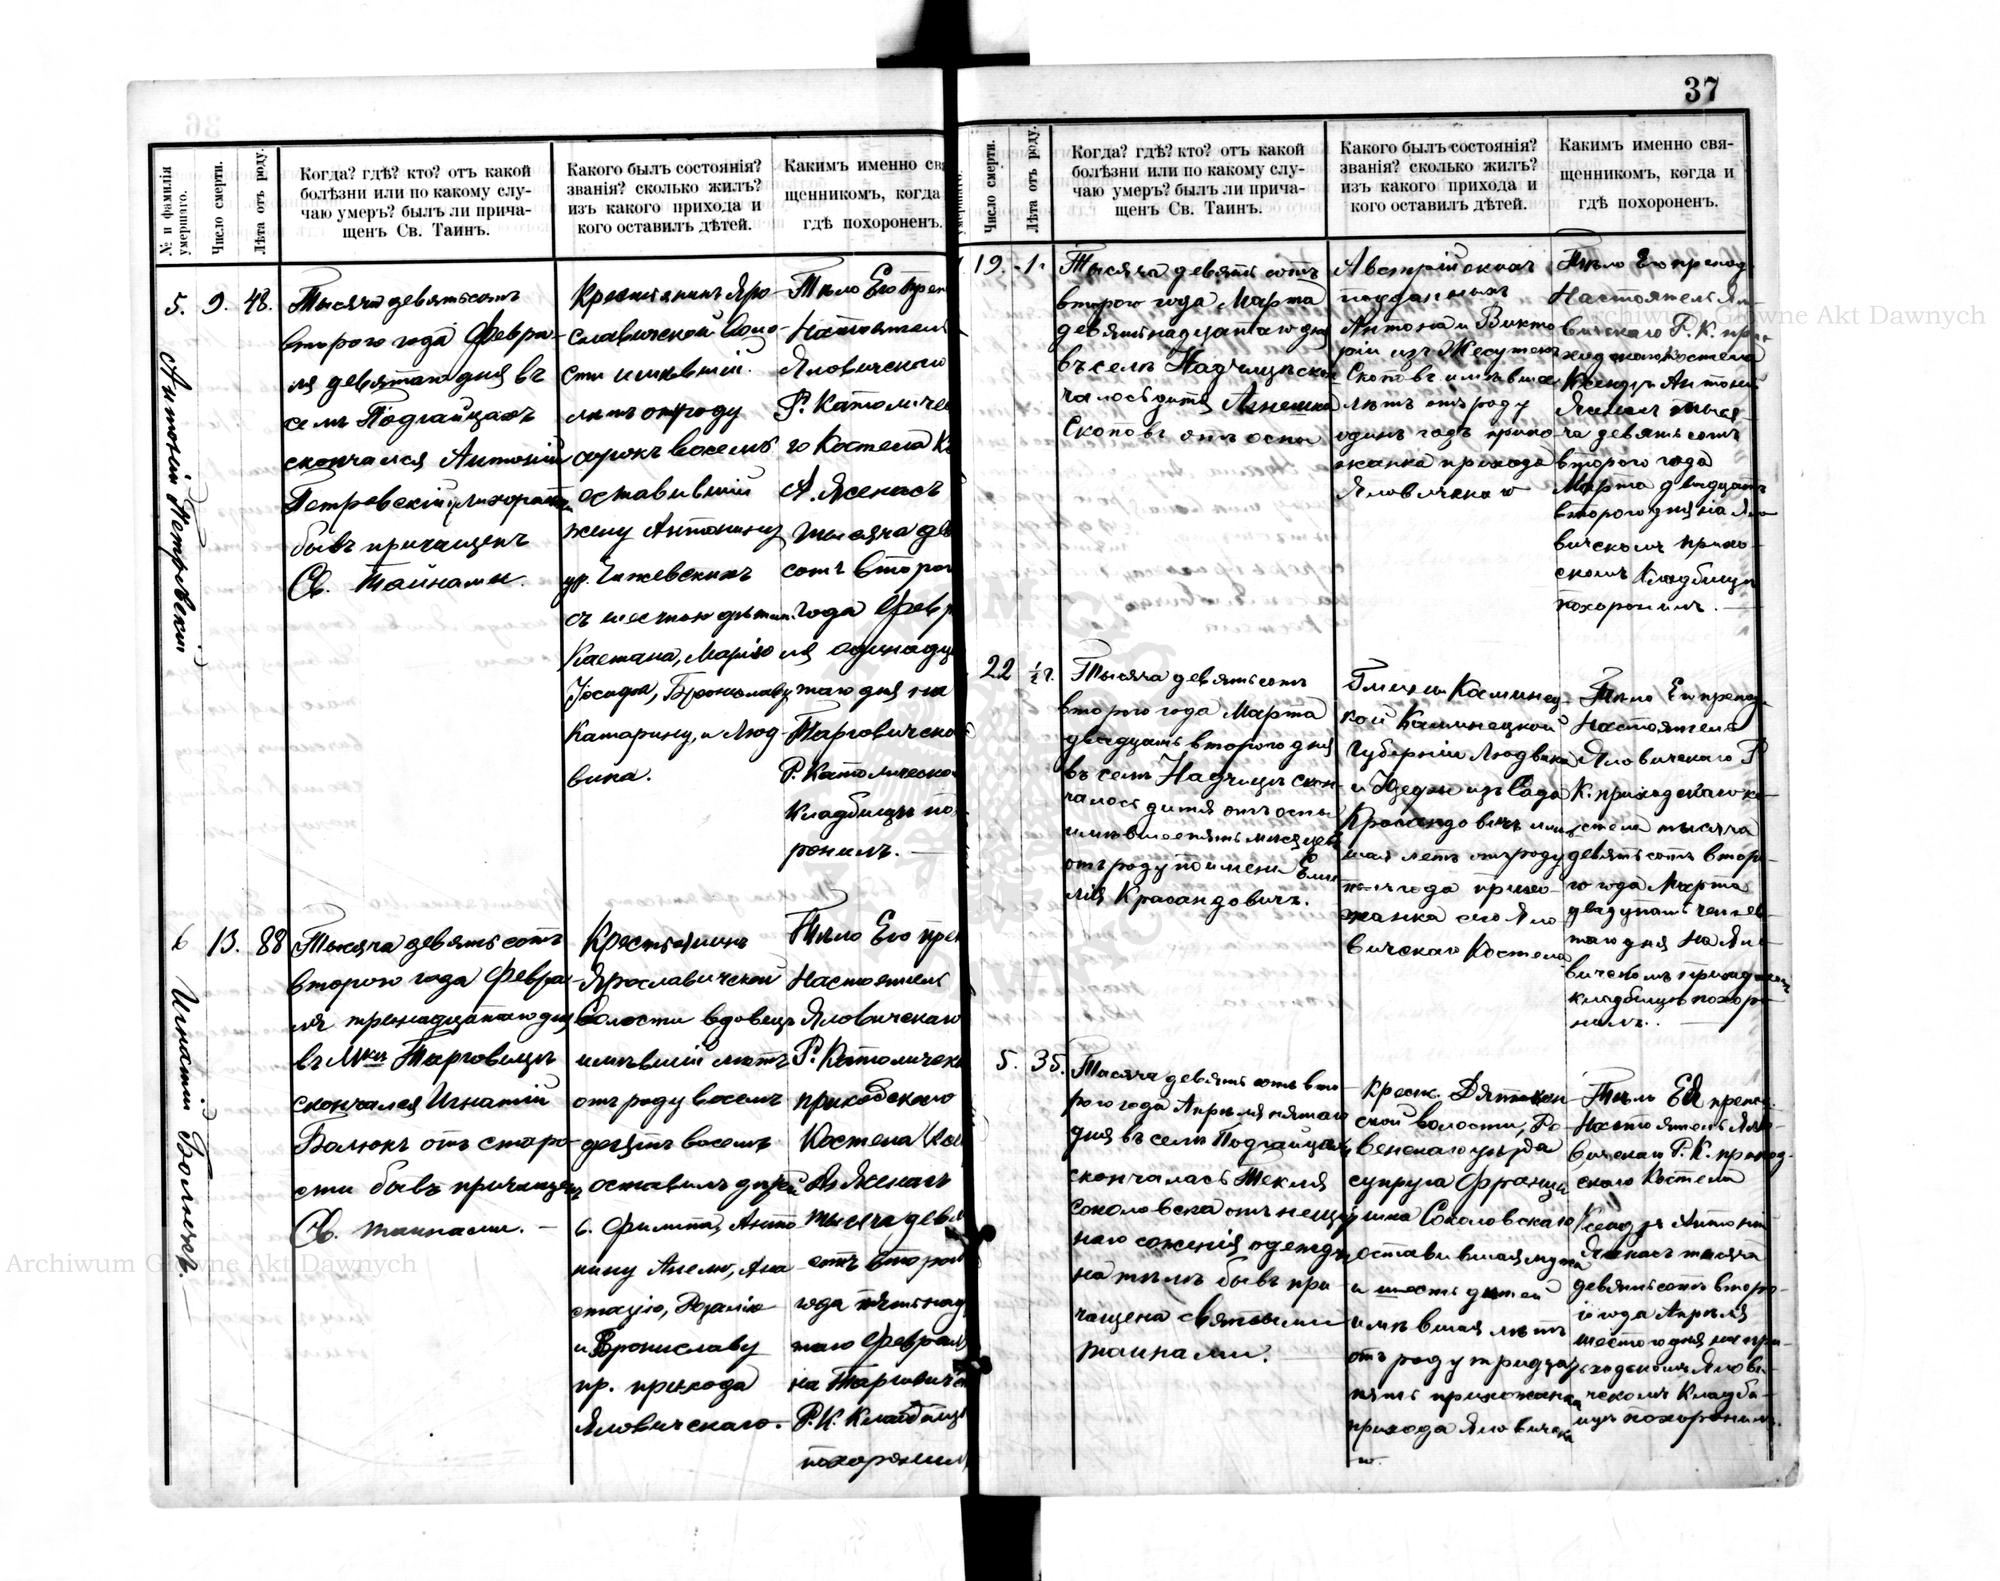 37
№ и фамилія
умершаго.
Число смерти.
Лѣта отъ роду.
Когда? гдѣ? кто? отъ какой
болѣзни или по какому слу-
чаю умеръ? былъ ли прича-
щенъ Св. Таинъ.
Какого былъ состоянія?
званія? сколько жилъ?
изъ какого прихода и
кого оставилъ дѣтей.
Какимъ именно св
щенникомъ, когда
гдѣ похороненъ.
5.
Антоній Петровскій
9.
48.
Тысяча девятьсотъ
второго года Февра-
ля девятаго дня въ
селѣ Подгайцахъ
скончался Антоній
Петровскій
бывъ причащенъ
Св. Тайнами.
Крестьянинъ Яро-
славичской воло-
сти имѣвшій
лѣтъ отъ роду
сорокъ восемь
оставившій
жену Антонину
ур. Чижевскихъ
съ шестью дѣтьми
Каетана, Марію
Іосифа, Брониславу
Катарину, и Люд-
вика.
Тѣло Его преп
Настоятель
Яловичскаго
Р. Католичес
го Костела К
А. Ясенасъ
тысяча дев
сотъ второг
года Февр
ля одинадца
таго дня на
Тарговичско
Р. Католическо
Кладбищѣ по
ронилъ.
6
Игнатій Болюкъ.
13.
88
Тысяча девятьсотъ
второго года Февра
ля тринадцатаго дня
въ Мкѣ Тарговицѣ
скончался Игнатій
Болюкъ отъ старо-
сти бывъ причащенъ
Св. таинами.
Крестьянинъ
Ярославичской
волости вдовецъ
имѣвшій лѣтъ
отъ роду восемь
десятъ восемь
оставилъ дѣтей
6. Филиппа, Анто
нину Анелю, Ана
стазію, Розалію
и Брониславу
пр. прихода
Яловичскаго.
Тѣло Его преп
Настоятель
Яловичскаго
Р. Католическ
приходскаго
Костела Кс
Ан Ясенасъ
тысяча девя
сотъ второг
года пятьнад
таго Февраля
на Тарговичс
Р. К. Кладбищѣ
похоронилъ
умершаго.
Число смерти.
Лѣта отъ роду.
Когда? гдѣ? кто? отъ какой
болѣзни или по какому слу-
чаю умеръ? былъ ли прича-
щенъ Св. Таинъ.
Какого былъ состоянія?
званія? сколько жилъ?
изъ какого прихода и
кого оставилъ дѣтей.
Какимъ именно свя-
щенникомъ, когда и
гдѣ похороненъ.
19.
1.
Тысяча девятьсотъ
второго года Марта
девятьнадцатаго дня
въ селѣ Надчицѣ скон
чалось дитя Анешка
Скоповъ отъ оспы
Австрійскихъ
подданныхъ
Антона и Викто
ріи изъ
Скоповъ имѣвшая
лѣтъ отъ роду
одинъ годъ прихо
жанка прихода
Яловичскаго
Тѣло Его препод.
Настоятель Яло
вичскаго Р. К. при
ходскаго Костела
Ксендзъ Антоній
Ясенасъ тыся-
ча девятьсотъ
второго года
Марта двадцать
второго дня на Яло
вичскомъ приход
скомъ Кладбищѣ
похоронилъ.
22
½ г.
Тысяча девятьсотъ
второго года Марта
двадцать второго дня
въ селѣ Надчицѣ скон-
чалось дитя отъ оспы
имѣвшее пять мѣсяцевъ
отъ роду по имени Еми
лія Красандовичъ.
Каменец-
кой
Губерніи Людвика
и изъ
Красандовичъ имѣв
шая лѣтъ отъ роду
года прихо-
жанка сего Яло
вичскаго Костела
Тѣло Ея препод.
Настоятель
Яловичскаго Р
К. приходскаго ко-
стела тысяча
девятьсотъ второ-
го года Марта
двадцать четвер-
таго дня на Яло-
вичскомъ приходскомъ
кладбищѣ похоро-
нилъ.
5.
35.
Тысяча девятьсотъ вто
рого года Апрѣля пятаго
дня въ селѣ Подгайцахъ
скончалась Текля
Соколовска отъ нещаст
наго сожженія одежды
на тѣлѣ бывъ при
чащена Святыми
таинами.
Крест. Дятков-
ской волости, Ро-
венскаго уѣзда
супруга Франци
шка Соколовскаго
оставившая мужа
и шесть дѣтей
имѣвшая лѣтъ
отъ роду тридцать
пять прихожанка
прихода Яловичска
го.
Тѣло Ея препод.
Настоятель Яло-
вичскаго Р. К. приход-
скаго Костела
Ксендзъ Антоній
Ясенасъ тысяча
девятьсотъ второ-
го года Апрѣля
шестого дня на при-
ходскомъ Яло ви-
ческомъ Кладби-
щѣ похоронилъ.
Archiwum Główne Akt Dawnych
Archiwum Główne Akt Dawnych